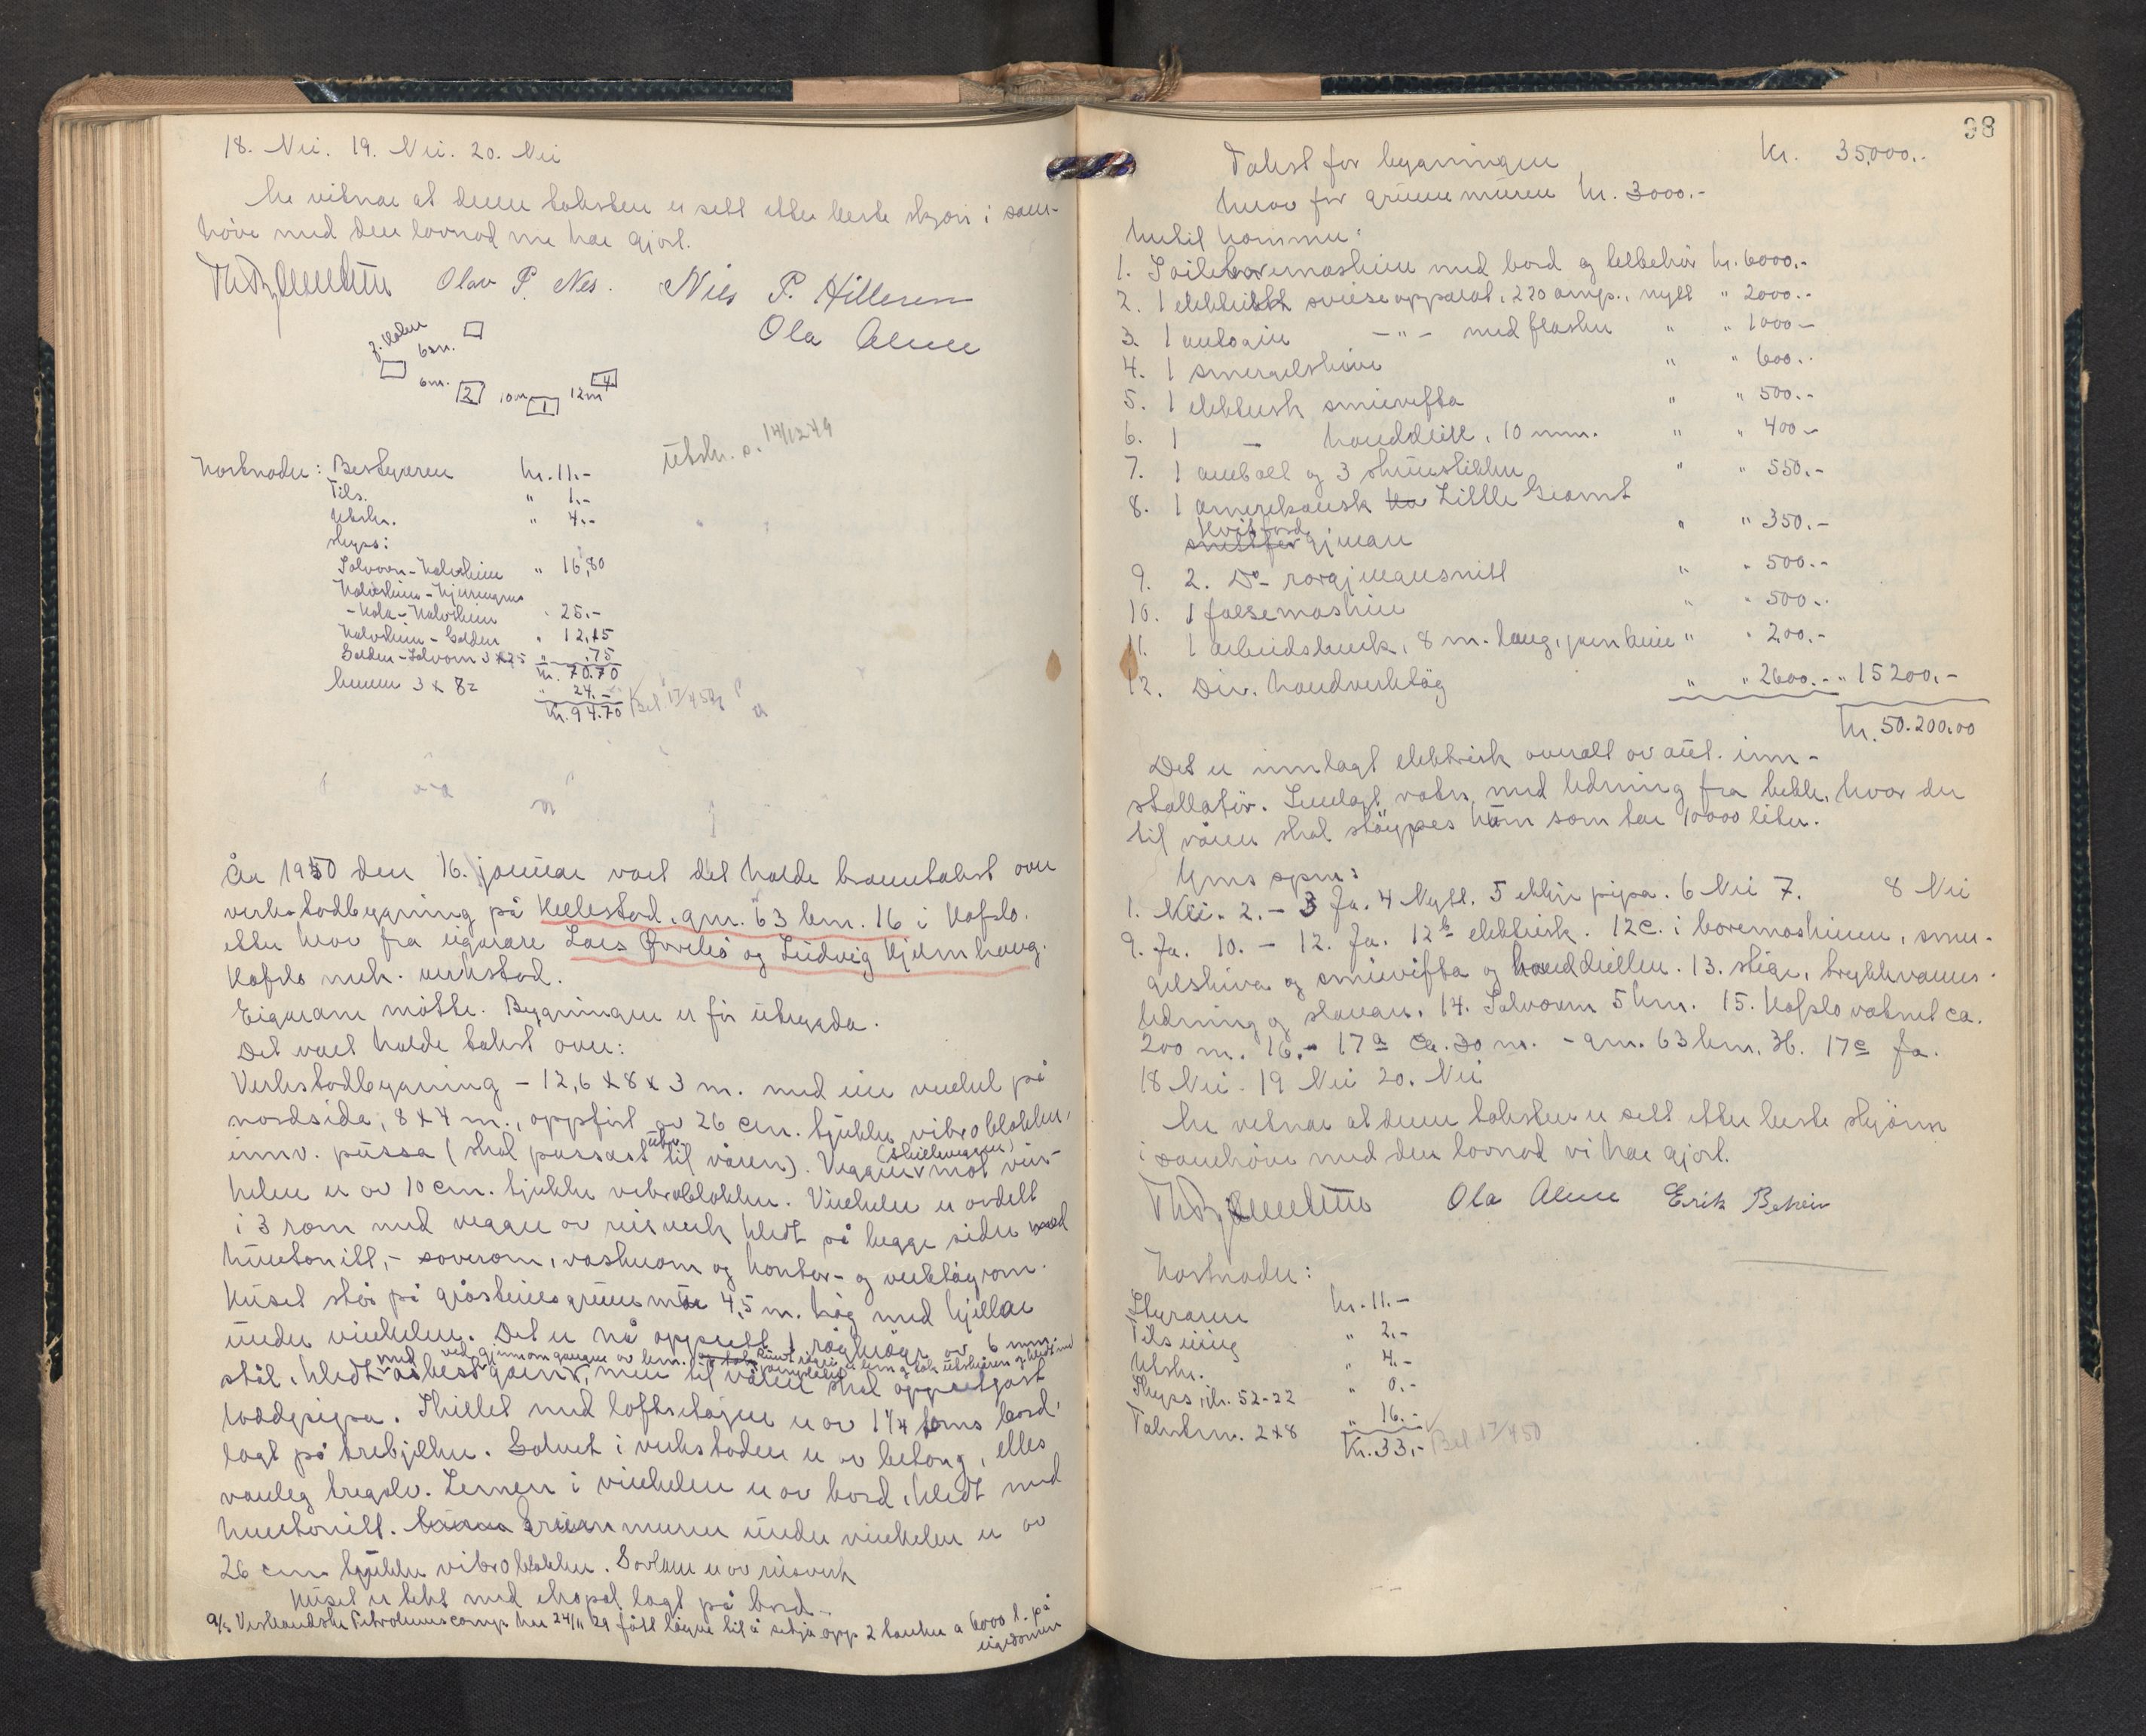 18. Nei. 19. Nei. 20. Nei
Me vitnar at denne taksten er sett etter beste skjøn i sam-
høve med den lovnad me har gjort.
Olav P. Nes. Nils P. Hilleren
Ola Alme
6 m.
6 m. 2 10 m 1 12 m 4
Utskr. s. 14/12 49
Kostnader: Bestyraren kr. 11.-
Tils. " 1.-
Utskr. " 4.-
Skyss:
Solvorn - Kalvheim " 16,80
- Kola - Kalvheim " 25.-
Kalvheim - Galden " 12,15
Galden - Solvorn 3 x 25 " .75
kr. 70.70
3 x 8 = " 24.-
kr. 94.70 Bet. 17/4 50
År 1950 den 16. januar vart det halde branntakst over
verkstadbygning på Kvekstad, gnr. 63 bnr. 16 i Hafslo.
etter krav frå eigarane Lars Ørrebø og Ludvig Kjernhaug.
Hafslo mek. verkstad.
Eigarane møtte. Bygningen er før utbygda.
Det vart halde takst over:
Verkstadbygning - 12,6 x 8 x 3 m. med ein vinkel på
nordsida, 8 x 4 m., oppført av 26 cm. tjukke vibroblokker,
innv. pussa (skal pussast utv. til våren). Veggen (skilleveggen) mot vin-
kelen er av 10 cm. tjukke vibroblokker. Vinkelen er avdelt
i 3 rom med vegger av reisverk kledt på begge sider med
huntonitt, - soverom, vaskerom og kontor- og verktøyrom.
Huset står på gråsteinsgrunnmur 4,5 m. høg med kjellar
under vinkelen. Det er nå oppsett 1 røykrøyr av 6 mm.
stål, kledt med asbest ved gjennomgangen av men til våren skal oppsetjast
loddpipa. Skillet med loftsetasjen er av 1 1/4 toms bord,
lagt på trebjelker. Golvet i verkstaden er av betong, elles
vanleg tregolv. Lemen i vinkelen er av bord, kledt med
huntonitt. Grunnmuren under vinkelen er av
26 cm tjukke vibroblokker. Gavlane er av reisverk
Huset er tekt med skopal lagt på bord.
A/S Vestlandske Petroleumscomp. har 24/11 49 fått løyve til å setja opp 2 tankar a 6000 l. på
eigedomen
98
Takst for bygningen kr. 35,000.-
herav for grunnmuren kr. 3000.-
hertil kommer:
1. Søileboremaskine med bord og tilbehør kr. 6000.-
2. 1 elektrisk sveiseapparat, 220 amp., nytt " 2000.-
3. 1 autogen -"- med flasker " " 1000.-
4. 1 smergelskive " " 600.-
5. 1 elektrisk smievifta " " 500.-
6. 1 - handdrill, 10 mm. " " 400.-
7. 1 ambolt og 3 skruestikker " " 550.-
8. 1 amerikansk Little Geamt
gjengar " " 350.-
9. 2. Do rørgjengasnitt " " 500.-
10. 1 falsemaskin " " 500.-
11. 1 arbeidsbenk, 8 m. lang, " " 200.-
12. Div. handverktøy " " 2600.- " 15200.-
kr. 50.200.00
Det er innlagt elektrisk overalt av aut. inn-
stallatør. Innlagt vatn med ledning fra bekk, hvor der
til våren skal støypes kum som tar 10000 liter.
Yms spm:
1. Nei. 2. - 3 Ja. 4 Nytt. 5 ettløp pipa. 6 Nei 7. 8 Nei
9. Ja. 10. - 12. Ja. 12b elektrisk. 12c. i boremaskinen, smer-
gelskiva og smievifta og handdrillen. 13. stige, trykkvanns-
ledning og slangar. 14. Solvorn 5 km. 15. Hafslovatnet ca.
200 m. 16. - 17a Ca. 30 m. - gnr. 63 bnr. 36. 17c Ja.
18 Nei. 19 Nei 20. Nei
Me vitnar at denne taksten er sett etter beste skjønn
i samhøve med den lovnad vi har gjort.
Ola Alme Erik Bakken
Kostnader:
Styraren kr. 11.-
Tilseiing " 2.-
Utskr. " 4.-
Skyss, kr. 52-22 " 0.-
Takstm. 2 x 8 " 16.-
Kr. 33.- Bet. 17/4 50